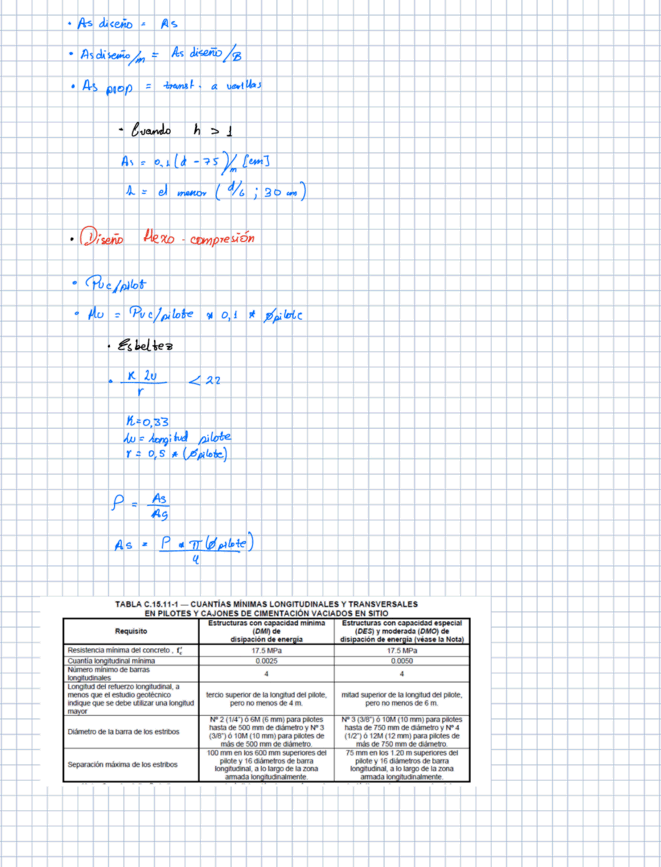 • As diseño = As
• As diseño/m = As diseño/B
• As prop = transf. a varillas
• Cuando h > 1
As = 0,1(d - 75)/m [cm]
s = el menor (d/6 ; 30 cm)
• Diseño flexo-compresión
• Puc/pilot
• Mu = Puc/pilote * 0,1 * Øpilote
• Esbeltez
• K lu / r < 22
K=0,33
lu = longitud pilote
r = 0,5 * (Øpilote)
ρ = As / Ag
As = ρ * π (Ø pilote) / 4
TABLA C.15.11-1 — CUANTÍAS MÍNIMAS LONGITUDINALES Y TRANSVERSALES
EN PILOTES Y CAJONES DE CIMENTACIÓN VACIADOS EN SITIO
Requisito
Estructuras con capacidad mínima
(DMI) de
disipación de energía
Estructuras con capacidad especial
(DES) y moderada (DMO) de
disipación de energía (véase la Nota)
Resistencia mínima del concreto , f'c
17.5 MPa
17.5 MPa
Cuantía longitudinal mínima
0.0025
0.0050
Número mínimo de barras
longitudinales
4
4
Longitud del refuerzo longitudinal, a
menos que el estudio geotécnico
indique que se debe utilizar una longitud
mayor
tercio superior de la longitud del pilote,
pero no menos de 4 m.
mitad superior de la longitud del pilote,
pero no menos de 6 m.
Diámetro de la barra de los estribos
Nº 2 (1/4") ó 6M (6 mm) para pilotes
hasta de 500 mm de diámetro y Nº 3
(3/8") ó 10M (10 mm) para pilotes de
más de 500 mm de diámetro.
Nº 3 (3/8") ó 10M (10 mm) para pilotes
hasta de 750 mm de diámetro y Nº 4
(1/2") ó 12M (12 mm) para pilotes de
más de 750 mm de diámetro.
Separación máxima de los estribos
100 mm en los 600 mm superiores del
pilote y 16 diámetros de barra
longitudinal, a lo largo de la zona
armada longitudinalmente.
75 mm en los 1.20 m superiores del
pilote y 16 diámetros de barra
longitudinal, a lo largo de la zona
armada longitudinalmente.